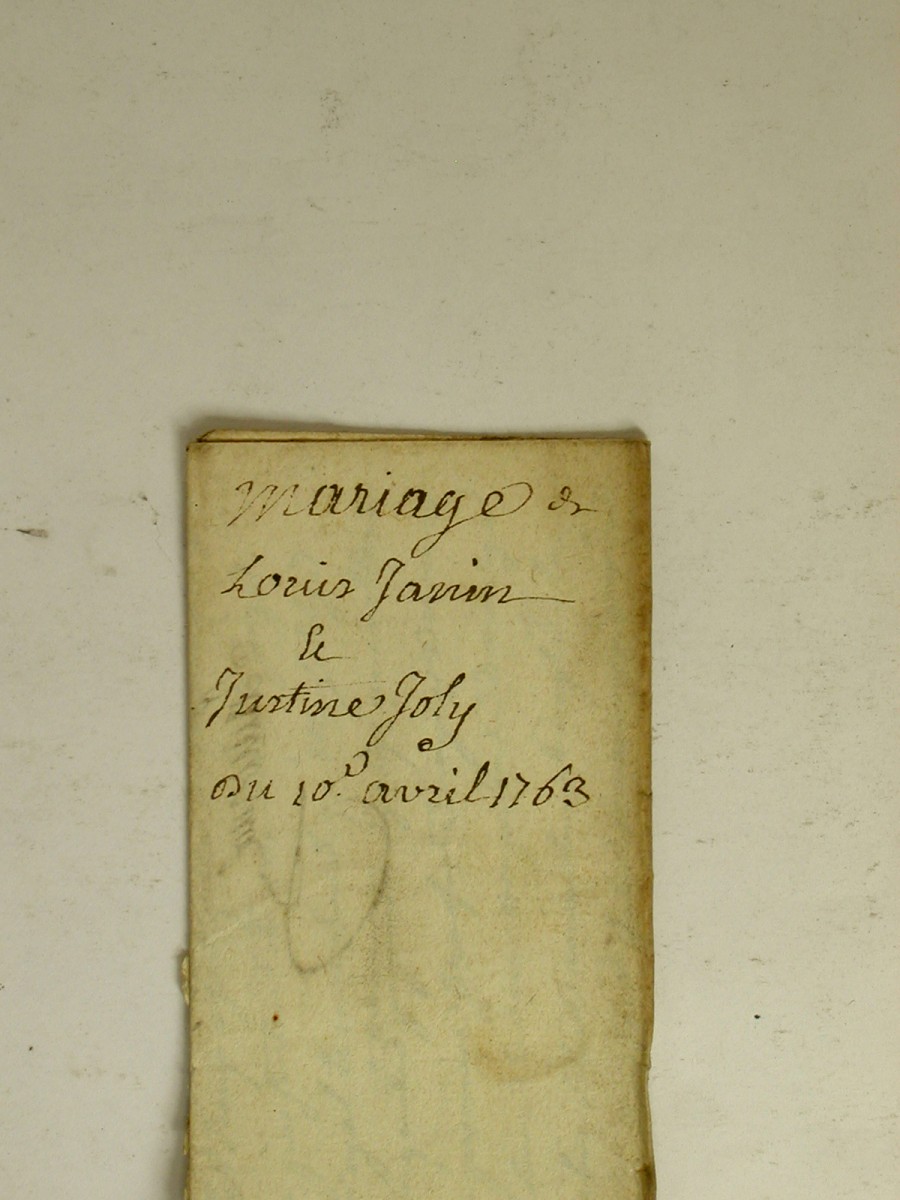 mariage de
Louis Janin
&
Justine Joly
Du 10e avril 1763